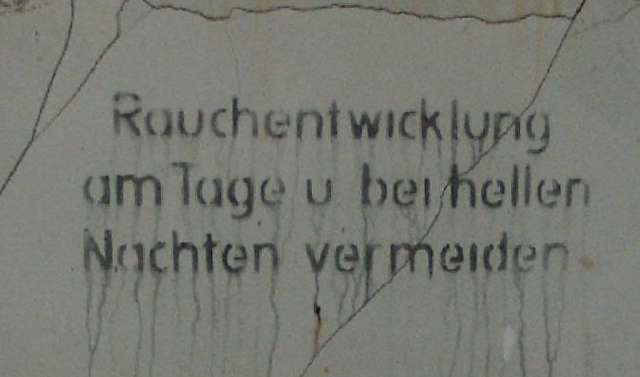 Rauchentwicklung
am Tage u bei hellen
Nachten vermeiden